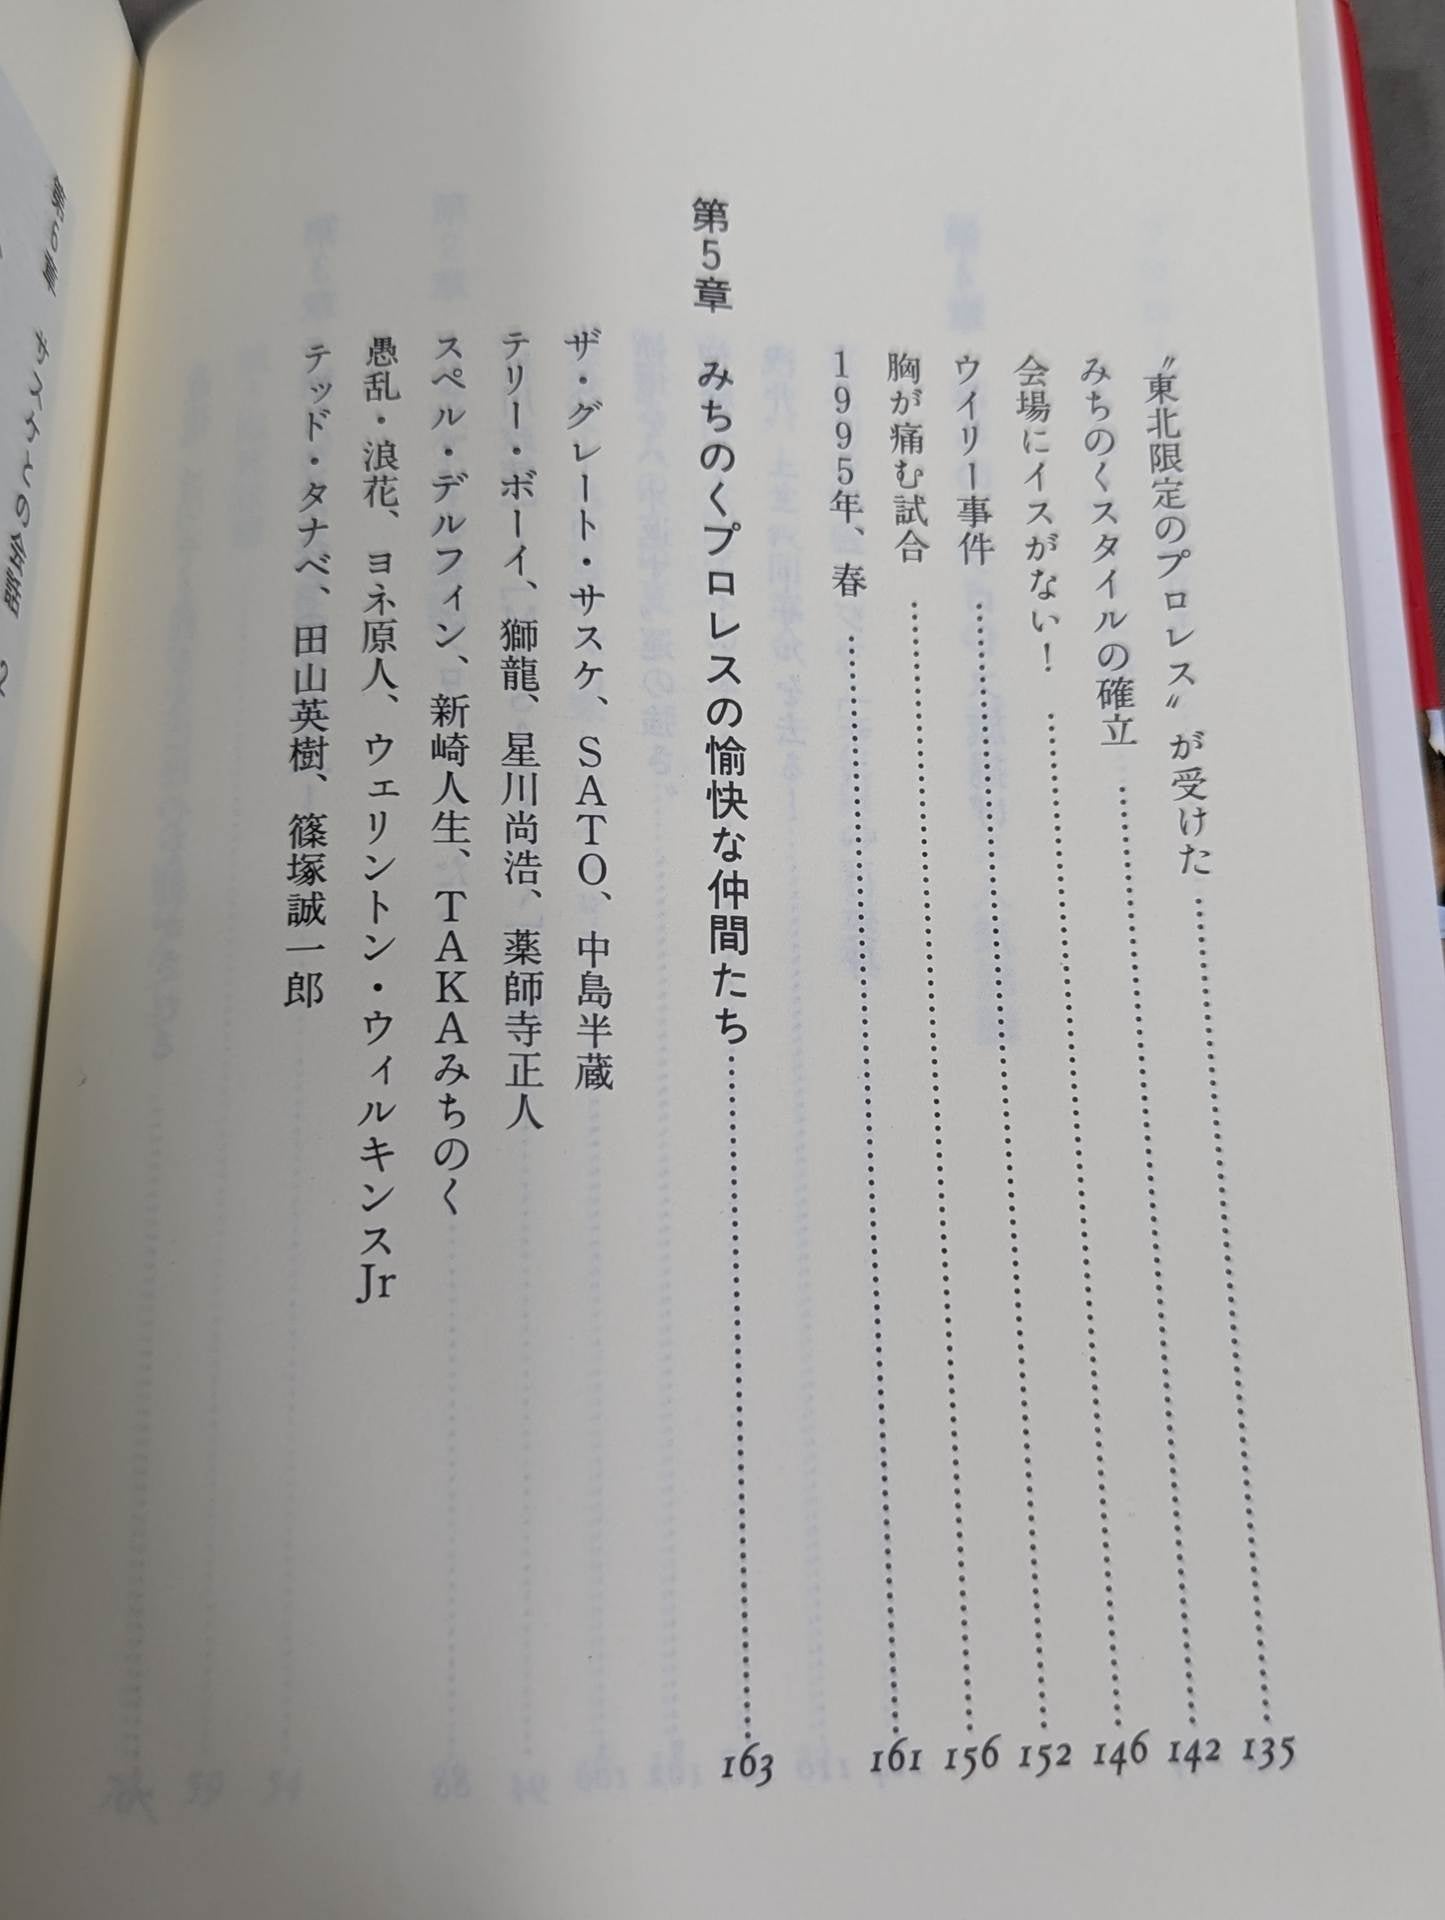 〝東北限定のプロレス〟が受けた 135
みちのくスタイルの確立 142
会場にイスがない！ 146
ウイリー事件 152
胸が痛む試合 156
1995年、春 161
第5章 みちのくプロレスの愉快な仲間たち 163
ザ・グレート・サスケ、SATO、中島半蔵
テリー・ボーイ、獅龍、星川尚浩、薬師寺正人
スペル・デルフィン、新崎人生、TAKAみちのく
愚乱・浪花、ヨネ原人、ウェリントン・ウィルキンスJr
テッド・タナベ、田山英樹、篠塚誠一郎
第6章